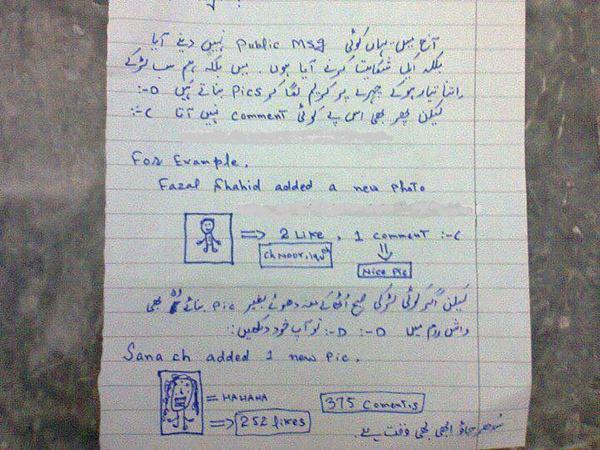 آج میں یہاں کوئی Public Msg نہیں دینے آیا
بلکہ ایک شکایت کرنے آیا ہوں. میں بلکہ ہم سب لڑکے
اتنا تیار ہوکے چہرے پر کریم لگا کر Pics بناتے ہیں :-D
لیکن پھر بھی اس پے کوئی comment نہیں آتا :-C
For Example.
Fazal Shahid added a new Photo
=> 2 Like , 1 comment :-C
Ch Noor,
Nice Pic
لیکن اگر کوئی لڑکی صبح اٹھ کے منہ دھوئے بغیر pic بنائے وہ بھی
واش روم میں :-D :-D تو آپ خود دیکھیں::
Sana ch added 1 new Pic.
= HAHAHA
=> 252 likes
375 Coments
سدھر جاؤ ابھی بھی وقت ہے.